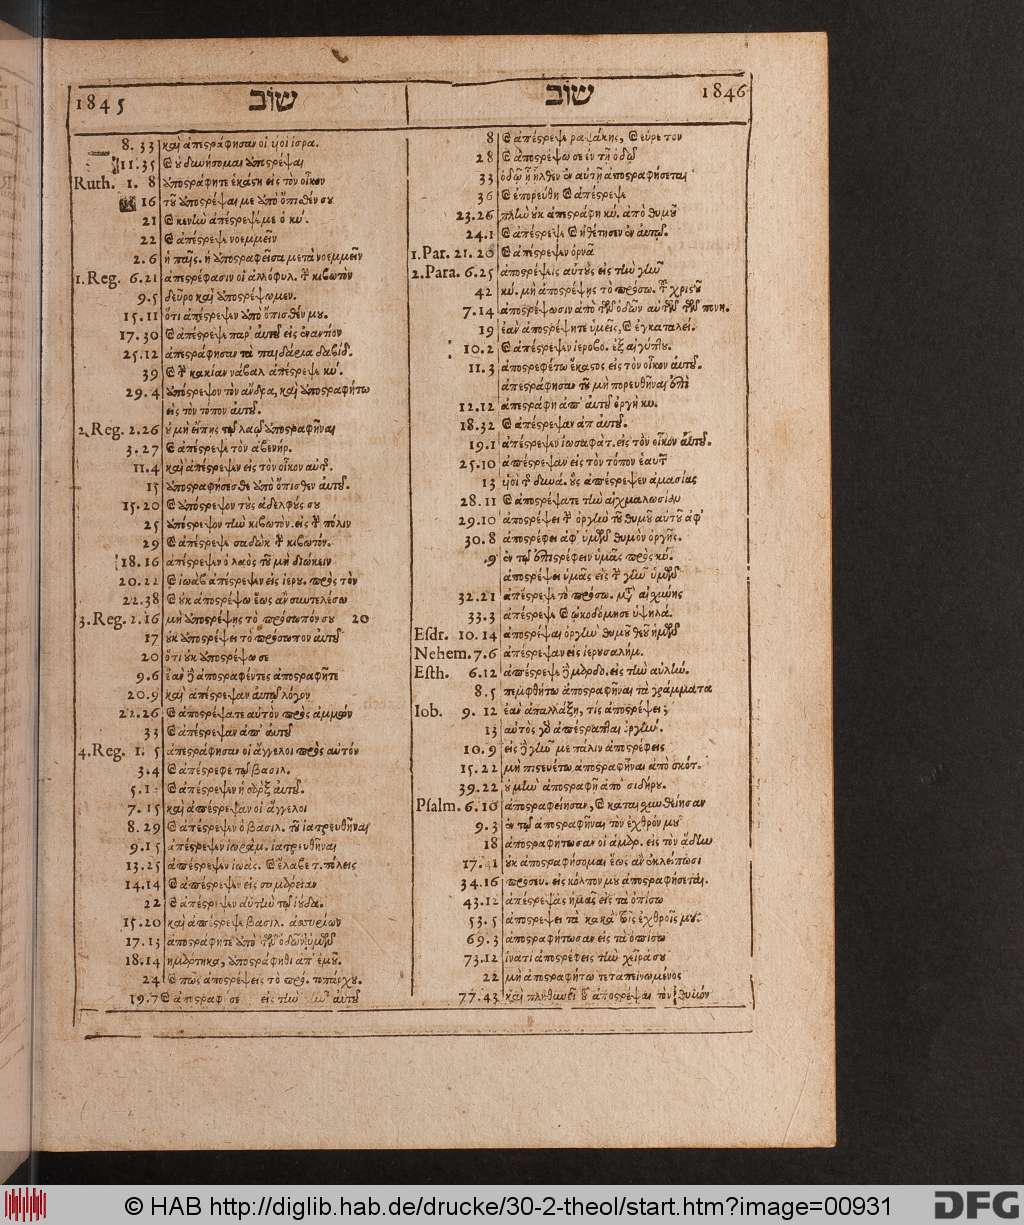 1845 שוב
8. 33 καὶ ἀπεςράφησαν οἱ υἱοὶ ἰσρα.
11. 35 ϗ οὐ δυνήσομαι
Ruth. 1. 8 ἑκάςη εἰς τὸν οἶκον
16 τοῦ με ὄπιθέν σου
21 ϗ κενὴν ἀπέςρεψέ με ὁ κύ.
22 ϗ ἀπέςρεψε νοεμμεὶν
2. 6 ἡ παῖς. ἡ μετὰ νοεμμεῖν
1. Reg. 6. 21 ἀπεςρέφασιν οἱ ἀλλόφυλ. τὴν κιβωτὸν
9. 5 δεῦρο καὶ
15. 11 ὅτι ἀπέςρεψεν ὄπισθέν μου.
17. 30 ϗ ἀπέςρεψε παρ' αὐτοῦ εἰς ἐναντίον
25. 12 ἀπεςράφησαν τὰ παιδάρια δαβίδ.
39 ϗ τὴν κακίαν νάβαλ ἀπέςρεψε κύ.
29. 4 τὸν ἄνδρα, καὶ
εἰς τὸν τόπον αὐτοῦ.
2. Reg. 2. 26 οὐ μὴ εἴπης τῷ λαῷ
3. 27 ϗ ἀπέςρεψε τὸν ἀβενήρ.
11. 4 καὶ ἀπέςρεψεν εἰς τὸν οἶκον αὐτ.
15 ὄπισθεν αὐτοῦ.
15. 20 ϗ τοὺς ἀδελφούς σου
25 τὴν κιβωτὸν. εἰς τὴν πόλιν
29 ϗ ἀπέςρεψε σαδὼκ τὴν κιβωτόν.
18. 16 ἀπέςρεψεν ὁ λαὸς τοῦ μὴ διώκειν
20. 22 ϗ ἰωὰβ ἀπέςρεψεν εἰς ἱερου. πρὸς τὸν
22. 38 ϗ οὐκ ἀποςρέψω ἕως ἂν συντελέσω
3. Reg. 2. 16 μὴ τὸ πρόσωπόν σου 20
17 οὐκ τὸ πρόσωπον αὐτοῦ
20 ὅτι οὐκ σε
9. 6 ἐὰν δὲ ἀποςραφέντες ἀποςραφῆτε
20. 9 καὶ ἀπέςρεψαν αὐτῷ λόγον
22. 26 ϗ ἀποςρέψατε αὐτὸν πρὸς
33 ϗ ἀπέςρεψαν ἀπ' αὐτοῦ
4. Reg. 1. 5 ἀπεςράφησαν οἱ ἄγγελοι πρὸς αὐτόν
3. 4 ϗ ἀπέςρεφε τῷ βασιλ.
5. 1 ϗ ἀπέςρεψεν ἡ σὰρξ αὐτοῦ.
7. 15 καὶ ἀπέςρεψαν οἱ ἄγγελοι
8. 29 ϗ ἀπέςρεψεν ὁ βασιλ. τοῦ ἰατρευθῆναι
9. 15 ἀπέςρεψεν ἰωράμ. ἰατρευθῆναι
13. 25 ἀπέςρεψεν ἰωάς. ϗ ἔλαβε τ. πόλεις
14. 14 ϗ ἀπέςρεψεν εἰς σαμάρειαν
22 ϗ ἀπέςρεψεν αὐτὴν τῷ ἰούδα.
15. 20 καὶ ἀπέςρεψε βασιλ. ἀσσυρίων
17. 13 ἀποςράφητε τῶν ὁδῶν ὑμῶν
18. 14 ἡμάρτηκα, ἀπ' ἐμοῦ.
24 ϗ πῶς ἀποςρέψεις τὸ πρός. τοπάρχου.
19. 7 ϗ ἀποςραφ σε εἰς τὴν αὐτοῦ
שוב 1846
8 ϗ ἀπέςρεψε ραψάκης, ϗ εὗρε τον
28 ϗ ἀποςρέψω σε ἐν τῇ ὁδῷ
33 ὁδῷ ᾗ ἦλθεν ἐν αὐτῇ ἀποςραφήσεται
36 ϗ ἐπορεύθη ϗ ἀπέςρεψε
23. 26 πλὴν οὐκ ἀπεςράφη κύ. ἀπὸ θυμοῦ
24. 1 ϗ ἀπέςρεψε ϗ ἠθέτησεν ἐν αὐτῷ.
1. Par. 21. 20 ϗ ἀπέςρεψεν ὀρνᾶ
2. Para. 6. 25 ἀποςρέψεις αὐτοὺς εἰς τὴν γῆν
42 κύ. μὴ ἀποςρέψης τὸ πρόσω. τοῦ χριςοῦ
7. 14 ἀποςρέψωσιν ἀπὸ τῶν ὁδῶν αὐτῶν τῶν πονη.
19 ἐὰν ἀποςρέψητε ὑμεῖς, ϗ ἐγκαταλεί.
10. 2 ϗ ἀπέςρεψεν ἱεροβο. ἐξ αἰγύπτου.
11. 3 ἀποςρεφέτω ἕκαςος εἰς τὸν οἶκον αὐτοῦ.
ἀπεςράφησαν τοῦ μὴ πορευθῆναι ἐπὶ
12. 12 ἀπεςράφη ἀπ' αὐτοῦ ὀργὴ κυ.
18. 32 ϗ ἀπέςρεψαν ἀπ αὐτοῦ.
19. 1 ἀπέςρεψεν ἰωσαφάτ. εἰς τὸν οἶκον αὐτοῦ.
25. 10 ἀπέςρεψαν εἰς τὸν τόπον ἑαυτ
13 υἱοὶ τῆς δυνά. οὓς ἀπέςρεψεν ἀμασίας
28. 11 ϗ ἀποςρέψατε τὴν αἰχμαλωσίαν
29. 10 ἀποςρέψει τὴν ὀργὴν τοῦ θυμοῦ αὐτοῦ ἀφ'
30. 8 ἀποςρέφει ἀφ' ὑμῶν θυμὸν ὀργῆς.
9 ἐν τῷ ἐπιςρέφειν ὑμᾶς πρὸς κύ.
ἀποςρέψει ὑμᾶς εἰς τὴν γῆν ὑμῶν
32. 21 ἀπέςρεψε τὸ πρόσω. μετ' αἰσχύνης
33. 3 ἀπέςρεψε ϗ ᾠκοδόμησε ὑψηλά.
Esdr. 10. 14 ἀποςρέψαι ὀργὴν θυμοῦ θεοῦ ἡμῶν
Nehem. 7. 6 ἀπέςρεψαν εἰς ἱερυσαλήμ.
Esth. 6. 12 ἀπέςρεψε δὲ μαρδοδ. εἰς τὴν αὐλήν.
8. 5 πεμφθήτω ἀποςραφῆναι τὰ γράμματα
Iob. 9. 12 ἐὰν ἀπαλλάξη, τίς ἀποςρέψει;
13 αὐτὸς γὰρ ἀπέςραπται ὀργήν.
10. 9 εἰς δὲ γῆν με πάλιν ἀποςρέφεις
15. 22 μὴ πιςευέτω ἀποςραφῆναι ἀπὸ σκότ.
39. 22 οὐ μὴν ἀποςραφῇ ἀπὸ σιδήρου.
Psalm. 6. 10 ἀποςραφείησαν, ϗ καταισχυνθείησαν
9. 3 ἐν τῷ ἀποςραφῆναι τὸν ἐχθρόν μου
18 ἀποςραφήτωσαν οἱ ἁμαρ. εἰς τὸν ἅδην
17. 41 οὐκ ἀποςραφήσομαι ἕως ἂν ἐκλείπωσι
34. 16 προσευ. εἰς κόλπον μου ἀποςραφήσεται.
43. 12 ἀπέςρεψας ἡμᾶς εἰς τὰ ὀπίσω
53. 5 ἀποςρέψει τὰ κακὰ τοῖς ἐχθροῖς μου.
69. 3 ἀποςραφήτωσαν εἰς τὰ ὀπίσω
73. 12 ἱνατί ἀποςρέφεις τὴν χεῖρά σου
22 μὴ ἀποςραφήτω τεταπεινωμένος
77. 43 καὶ πληθυνεῖ τοῦ ἀποςρέψαι τὸν θυμόν
© HAB http://diglib.hab.de/drucke/30-2-theol/start.htm?image=00931
DFG